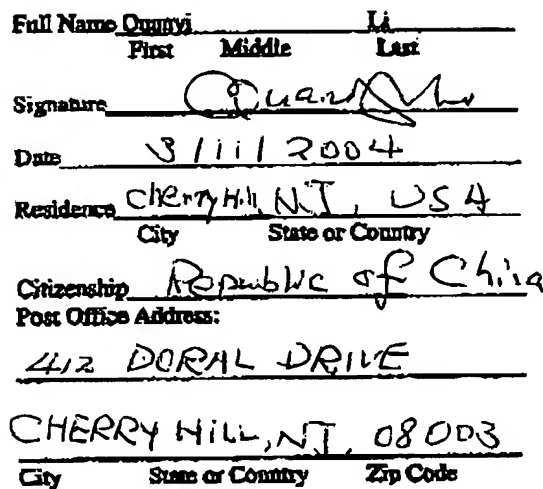 Full Name Quanyi Li
First Middle Last
Signature
Date 3/11/2004
Residence Cherry Hill, NJ, USA
City State or Country
Citizenship Republic of China
Post Office Address:
412 DORAL DRIVE
CHERRY HILL, NJ, 08003
City State or Country Zip Code